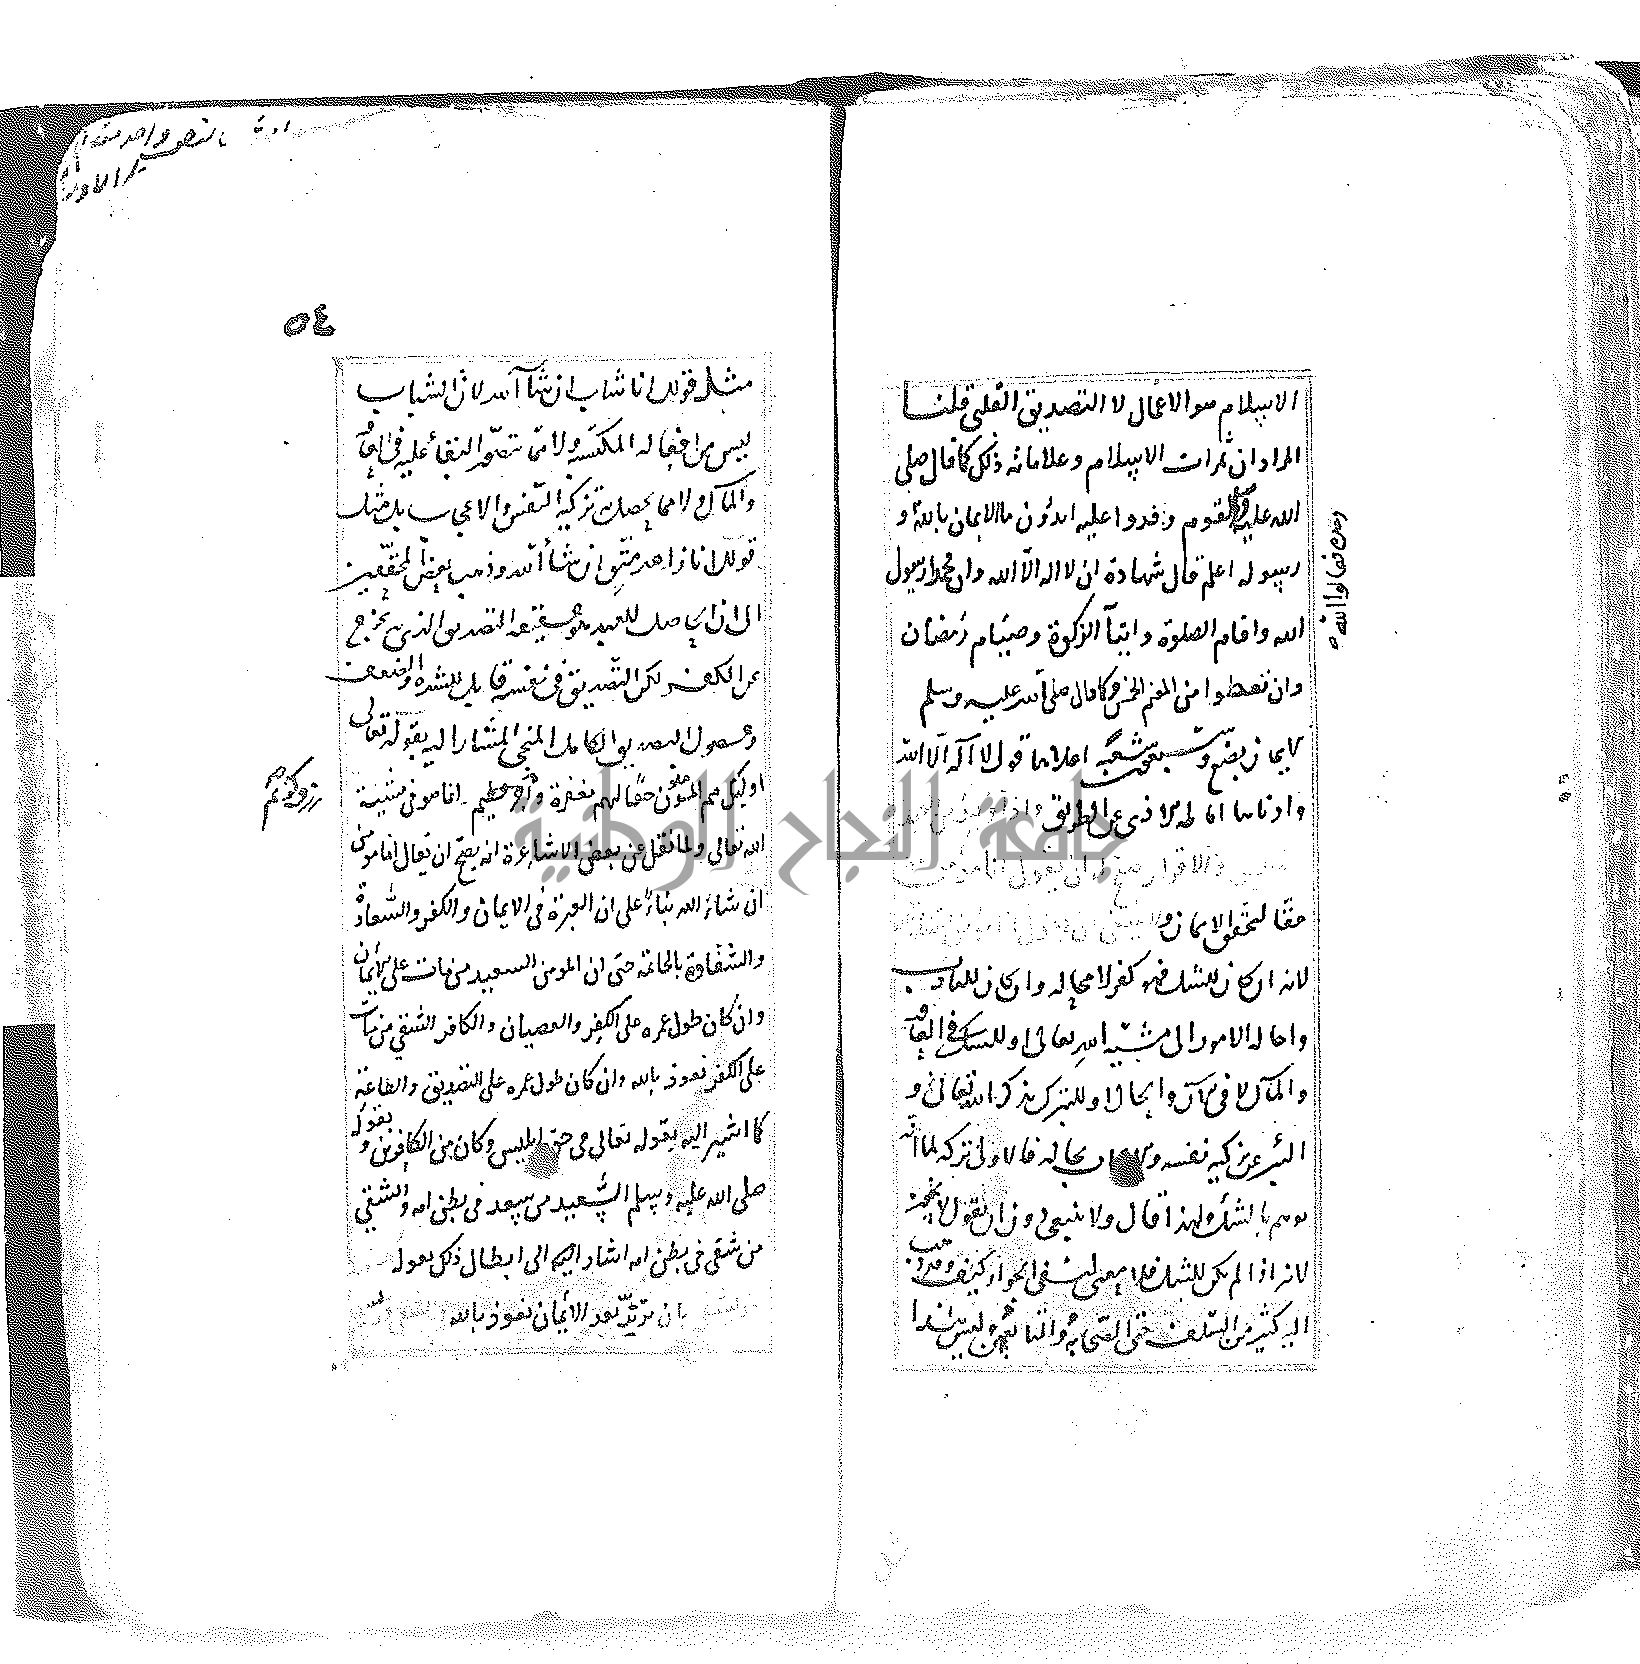 الاسلام هو الاعمال لا التصديق القلبي قلنا
المراد ان ثمرات الاسلام وعلاماته ذلك كما قال صلى
الله عليه وسلم لقوم وفدوا عليه اتدرون ما الايمان بالله و
رسوله اعلم قال شهادة ان لا اله الا الله وان محمدا رسول
الله واقام الصلوة وايتآ الزكوة وصيام رمضان
وان تعطوا من المغنم الخمس وكما قال صلى الله عليه وسلم
الايمان بضع وسبعون شعبة اعلاها قول لا اله الا الله
وادناها اماطة الاذى عن الطريق واذا وجد من العبد
التصديق والاقرار صح له ان يقول انا مومن
حقا لتحقق الايمان ولا ينبغي ان يقول انا مومن ان شاء الله
لانه ان كان للشك فهو كفر لا محالة وان كان للتادب
واحالة الامور الى مشية الله تعالى او للشك في العاقبة
والمآل لا في الآن والحال او للتبرك بذكر الله تعالى و
التبري عن تزكية نفسه والاعجاب بحاله فالاولى تركه لما انه
يوهم بالشك ولهذا قال ولا ينبغي دون ان يقول لا يجوز
لانه اذا لم يكن للشك فلا معنى لنفي الجواز كيف وقد ذهب
اليه كثير من السلف حتى الصحابة والتابعين وليس هذا
ورسوله فقالوا الله
٥٤
مثل قولك انا شاب ان شآ الله لان الشباب
ليس من افعاله المكتسبة ولا مما يتصور البقآ عليه في العاقبة
والمآل ولا مما يحصل به تزكية النفس والاعجاب بل مثل
قولك انا زاهد متق ان شآ الله وذهب بعض المحققين
الى ان الحاصل للعبد هو حقيقة التصديق الذي به يخرج
عن الكفر لكن التصديق في نفسه قابل للشدة والضعف
وحصول التصديق الكامل المنجي المشار اليه بقوله تعالى
اولئك هم المؤمنون حقا لهم مغفرة واجر عظيم انما هو في مشية
رزق كريم
الله تعالى ولما نقل عن بعض الاشاعرة انه يصح ان يقال انا مومن
ان شاء الله بناء على ان العبرة في الايمان والكفر والسعادة
والشقاوة بالخاتمة حتى ان المومن السعيد من مات على الايمان
وان كان طول عمره على الكفر والعصيان والكافر الشقي من مات
على الكفر نعوذ بالله وان كان طول عمره على التصديق والطاعة
كما اشير اليه بقوله تعالى في حق ابليس وكان من الكافرين وبقوله
صلى الله عليه وسلم السعيد من سعد في بطن امه والشقي
من شقي في بطن امه اشار اليه الى ابطال ذلك بقوله
بان يرتد بعد الايمان نعوذ بالله
جامعة النجاح الوطنية